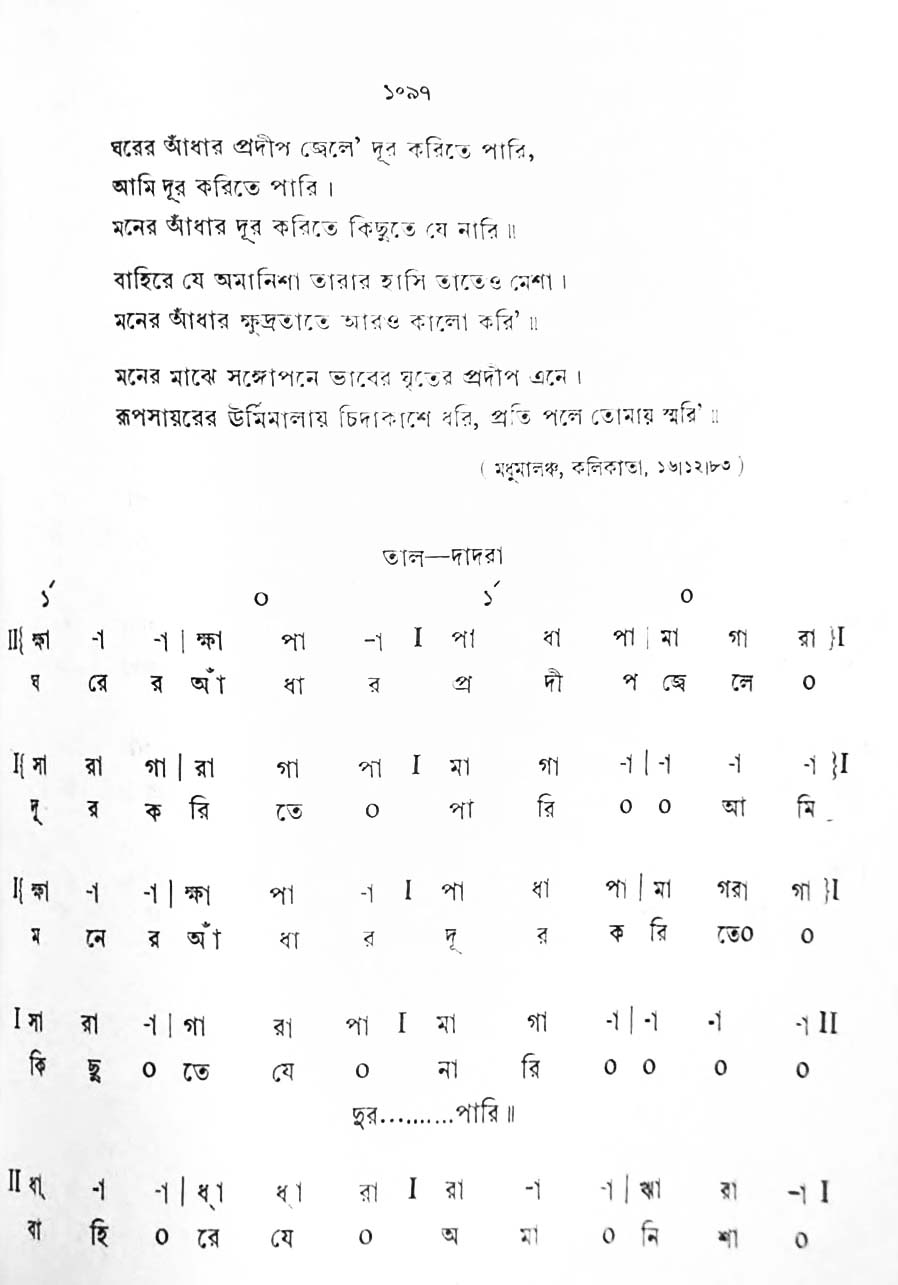 ১০৯৭
ঘরের আঁধার প্রদীপ জ্বেলে' দূর করিতে পারি,
আমি দূর করিতে পারি ।
মনের আঁধার দূর করিতে কিছুতে যে নারি ॥
বাহিরে যে অমানিশা তারার হাসি তাতেও মেশা ।
মনের আঁধার ক্ষুদ্রতাতে আরও কালো করি' ॥
মনের মাঝে সঙ্গোপনে ভাবের ঘৃতের প্রদীপ এনে ।
রূপসায়রের উর্মিমালায় চিদাকাশে ধরি, প্রতি পলে তোমায় স্মরি' ॥
( মধুমালঞ্চ, কলিকাতা, ১৬।১২।৮৩ )
তাল—দাদরা
১´ ০ ১´ ০
II{ ক্ষা -া -া | ক্ষা পা -া I পা ধা পা | মা গা রা }I
ঘ রে র আঁ ধা র প্র দী প জ্বে লে ০
I{ সা রা গা | রা গা পা I মা গা -া | -া -া -া }I
দূ র ক রি তে ০ পা রি ০ ০ আ মি
I{ ক্ষা -া -া | ক্ষা পা -া I পা ধা পা | মা গরা গা }I
ম নে র আঁ ধা র দূ র ক রি তে০ ০
I সা রা -া | গা রা পা I মা গা -া | -া -া -া II
কি ছু ০ তে যে ০ না রি ০ ০ ০ ০
দুর..........পারি ॥
II ধা্ -া -া | ধ্া ধ্া রা I রা -া -া | ঋা রা -া I
বা হি ০ রে যে ০ অ মা ০ নি শা ০